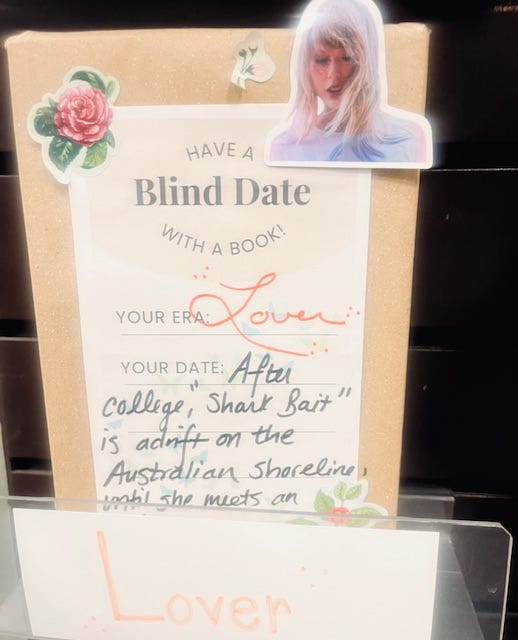 HAVE A
Blind Date
WITH A BOOK!
YOUR ERA: Lover
YOUR DATE: After
college, "Shark Bait"
is adrift on the
Australian Shoreline,
until she meets an
Lover